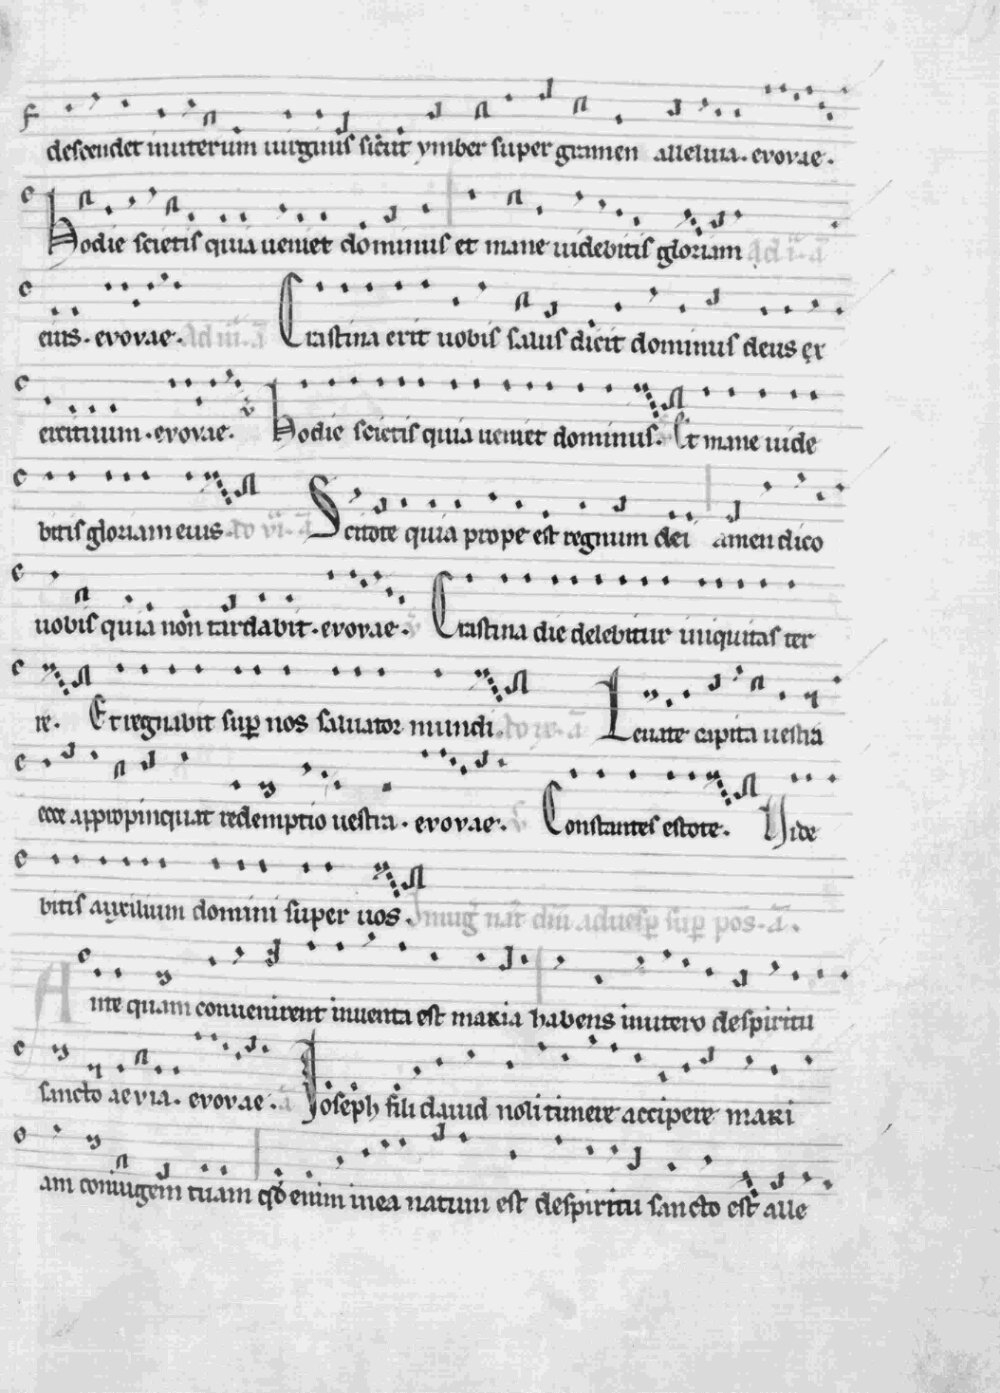 descendet inuterum uirginis sicut ymber super gramen alleluia. evovae.
Hodie scietis quia ueniet dominus et mane uidebitis gloriam
eius. evovae. Ad iii. a Crastina erit uobis salus dicit dominus deus ex
ercituum. evovae. Hodie scietis quia ueniet dominus. Et mane uide
bitis gloriam eius. Scitote quia prope est regnum dei amen dico
uobis quia non tardabit. evovae. Crastina die delebitur iniquitas ter
re. Et regnabit sup nos saluator mundi. Leuate capita uestra
ecce appropinquat redemptio uestra. evovae. Constantes estote. Vide
bitis auxilium domini super uos.
Ante quam conuenirent inuenta est maria habens inutero despiritu
sancto aevia. evovae. Ioseph fili dauid noli timere accipere mari
am coniugem tuam qd enim inea natum est despiritu sancto est alle